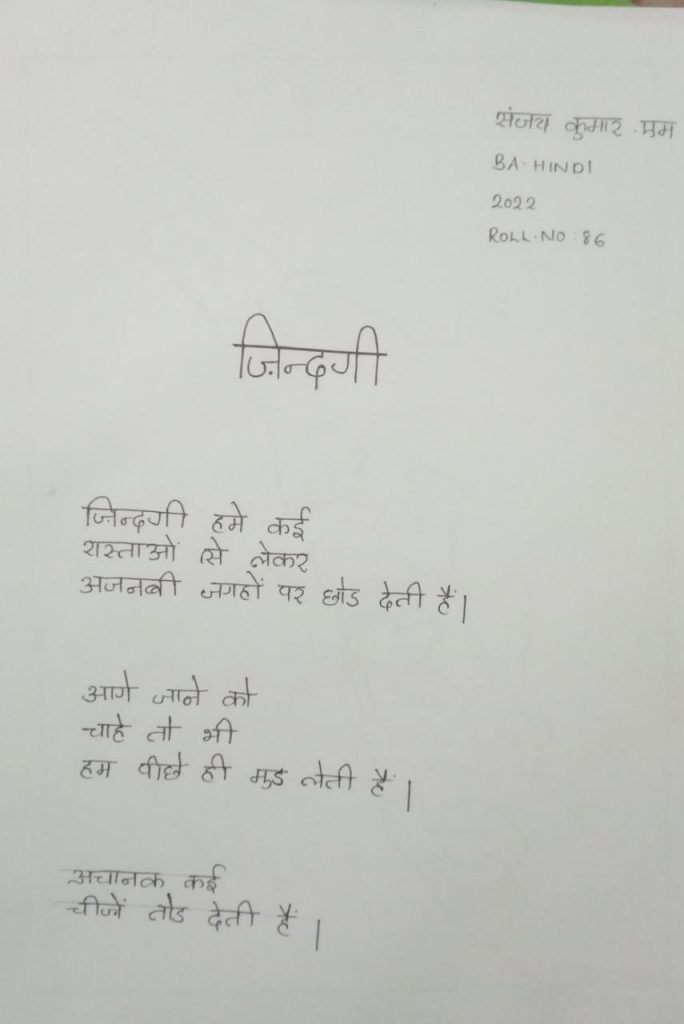 संजय कुमार .एम
BA. HINDI
2022
ROLL.NO : 86
ज़िन्दगी
ज़िन्दगी हमे कई
रास्ताओं से लेकर
अजनबी जगहों पर छोड देती हैं|
आगे जाने को
चाहे तो भी
हम पीछे ही मुड लेती हैं |
अचानक कई
चीजें तोड देती हैं |